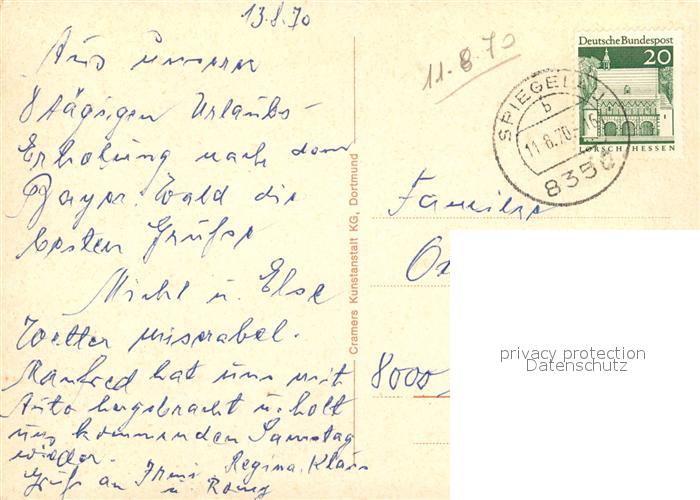 13.8.70
Aus unserem
8 tägigen Urlaubs-
Erholung nach dem
Bayer. Wald die
besten Grüße
Michl u. Else
Wetter miserabel.
Manfred hat uns mit
Auto hergebracht u. holt
uns kommenden Samstag
wieder.
Grüße an Irmi Regina. Klaus
u. Romy
Cramers Kunstanstalt KG, Dortmund
11.8.70
Deutsche Bundespost
20
LORSCH/HESSEN
SPIEGELAU
b
11.8.70
8356
Familie
8000
privacy protection
Datenschutz